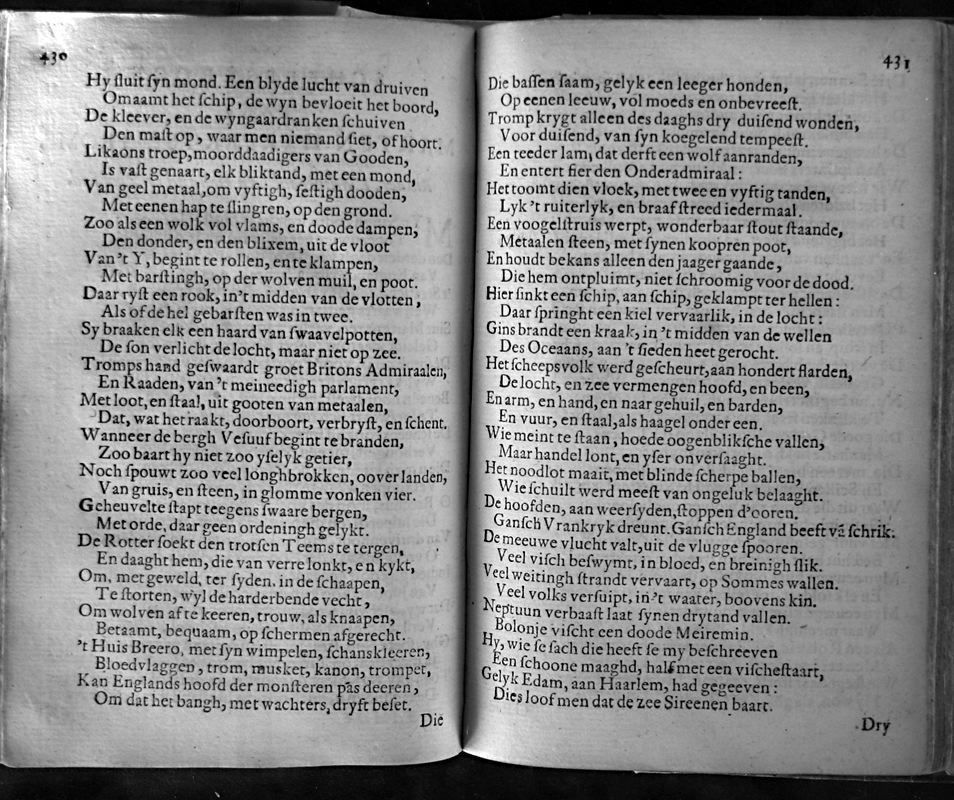 430
Hy ſluit ſyn mond. Een blyde lucht van druiven
Omaamt het ſchip, de wyn bevloeit het boord,
De kleever, en de wyngaardranken ſchuiven
Den maſt op, waar men niemand ſiet, of hoort.
Likaons troep, moorddaadigers van Gooden,
Is vaſt genaart, elk bliktand, met een mond,
Van geel metaal, om vyftigh, ſeſtigh dooden,
Met eenen hap te ſlingren, op den grond.
Zoo als een wolk vol vlams, en doode dampen,
Den donder, en den blixem, uit de vloot
Van 't Y, begint te rollen, en te klampen,
Met barſtingh, op der wolven muil, en poot.
Daar ryſt een rook, in't midden van de vlotten,
Als of de hel gebarſten was in twee.
Sy braaken elk een haard van ſwaavelpotten,
De ſon verlicht de locht, maar niet op zee.
Tromps hand geſwaardt groet Britons Admiraalen,
En Raaden, van 't meineedigh parlament,
Met loot, en ſtaal, uit gooten van metaalen,
Dat, wat het raakt, doorboort, verbryſt, en ſchent.
Wanneer de bergh Veſuuf begint te branden,
Zoo baart hy niet zoo yſelyk getier,
Noch ſpouwt zoo veel longhbrokken, oover landen,
Van gruis, en ſteen, in glomme vonken vier.
Geheuvelte ſtapt teegens ſwaare bergen,
Met orde, daar geen ordeningh gelykt.
De Rotter ſoekt den trotſen Teems te tergen,
En daaght hem, die van verre lonkt, en kykt,
Om, met geweld, ter ſyden, in de ſchaapen,
Te ſtorten, wyl de harderbende vecht,
Om wolven af te keeren, trouw, als knaapen,
Betaamt, bequaam, op ſchermen afgerecht.
't Huis Breero, met ſyn wimpelen, ſchanskleeren,
Bloedvlaggen, trom, musket, kanon, trompet,
Kan Englands hoofd der monſteren pas deeren,
Om dat het bangh, met wachters, dryft beſet.
Die
431
Die baſſen ſaam, gelyk een leeger honden,
Op eenen leeuw, vol moeds en onbevreeſt.
Tromp krygt alleen des daaghs dry duiſend wonden,
Voor duiſend, van ſyn koegelend tempeeſt.
Een teeder lam, dat derft een wolf aanranden,
En entert fier den Onderadmiraal:
Het toomt dien vloek, met twee en vyftig tanden,
Lyk 't ruiterlyk, en braaf ſtreed iedermaal.
Een voogelſtruis werpt, wonderbaar ſtout ſtaande,
Metaalen ſteen, met ſynen koopren poot,
En houdt bekans alleen den jaager gaande,
Die hem ontpluimt, niet ſchroomig voor de dood.
Hier ſinkt een ſchip, aan ſchip, geklampt ter hellen:
Daar ſpringht een kiel vervaarlik, in de locht:
Gins brandt een kraak, in 't midden van de wellen
Des Oceaans, aan 't ſieden heet gerocht.
Het ſcheepsvolk werd geſcheurt, aan hondert flarden,
De locht, en zee vermengen hoofd, en been,
En arm, en hand, en naar gehuil, en barden,
En vuur, en ſtaal, als haagel onder een.
Wie meint te ſtaan, hoede oogenblikſche vallen,
Maar handel lont, en yſer onverſaaght.
Het noodlot maait, met blinde ſcherpe ballen,
Wie ſchuilt werd meeſt van ongeluk belaaght.
De hoofden, aan weerſyden, ſtoppen d'ooren.
Ganſch Vrankryk dreunt. Ganſch England beeft vā ſchrik.
De meeuwe vlucht valt, uit de vlugge ſpooren.
Veel viſch beſwymt, in bloed, en breinigh ſlik.
Veel weitingh ſtrandt vervaart, op Sommes wallen.
Veel volks verſuipt, in't waater, boovens kin.
Neptuun verbaaſt laat ſynen drytand vallen.
Bolonje viſcht een doode Meiremin.
Hy, wie ſe ſach die heeft ſe my beſchreeven
Een ſchoone maaghd, half met een viſcheſtaart,
Gelyk Edam, aan Haarlem, had gegeeven:
Dies loof men dat de zee Sireenen baart.
Dry